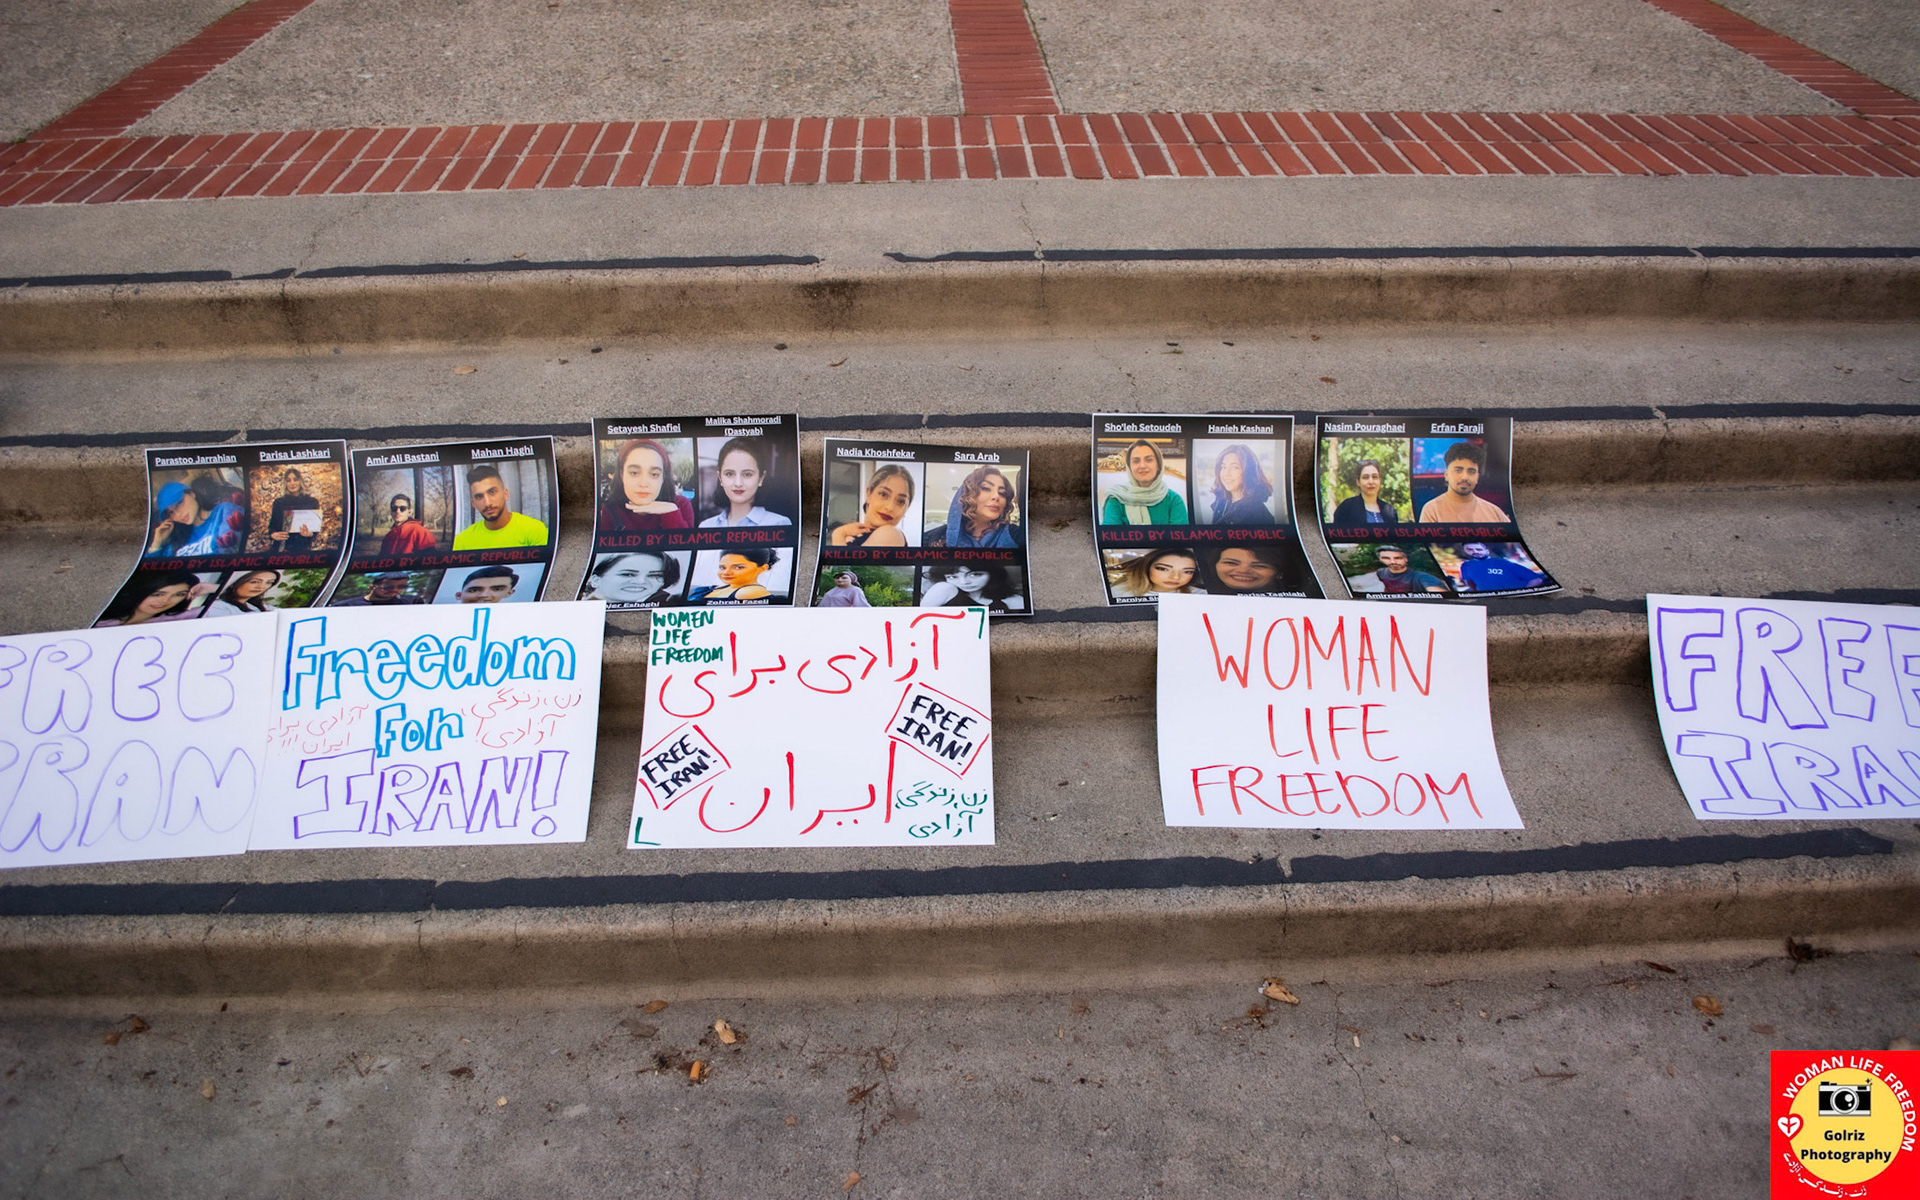 Parastoo Jarrahian
Parisa Lashkari
KILLED BY ISLAMIC REPUBLIC
Amir Ali Bastani
Mahan Haghi
KILLED BY ISLAMIC REPUBLIC
Setayesh Shafiei
Malika Shahmoradi
(Dastyab)
KILLED BY ISLAMIC REPUBLIC
Eshaghi
Zohreh Fazeli
Nadia Khoshfekar
Sara Arab
KILLED BY ISLAMIC REPUBLIC
Sho'leh Setoudeh
Hanieh Kashani
KILLED BY ISLAMIC REPUBLIC
Parniya
Parisa Taghlabi
Nasim Pouraghaei
Erfan Faraji
KILLED BY ISLAMIC REPUBLIC
302
Amirreza Fathian
FREE
IRAN
Freedom
For
IRAN!
زن، زندگی،
آزادی!
آزادی برای
ایران !!!
WOMEN
LIFE
FREEDOM
آزادی برای
ایران
FREE
IRAN!
FREE
IRAN!
زن، زندگی،
آزادی
WOMAN
LIFE
FREEDOM
FREE
IRAN
WOMAN LIFE FREEDOM
Golriz
Photography
زن، زندگی، آزادی